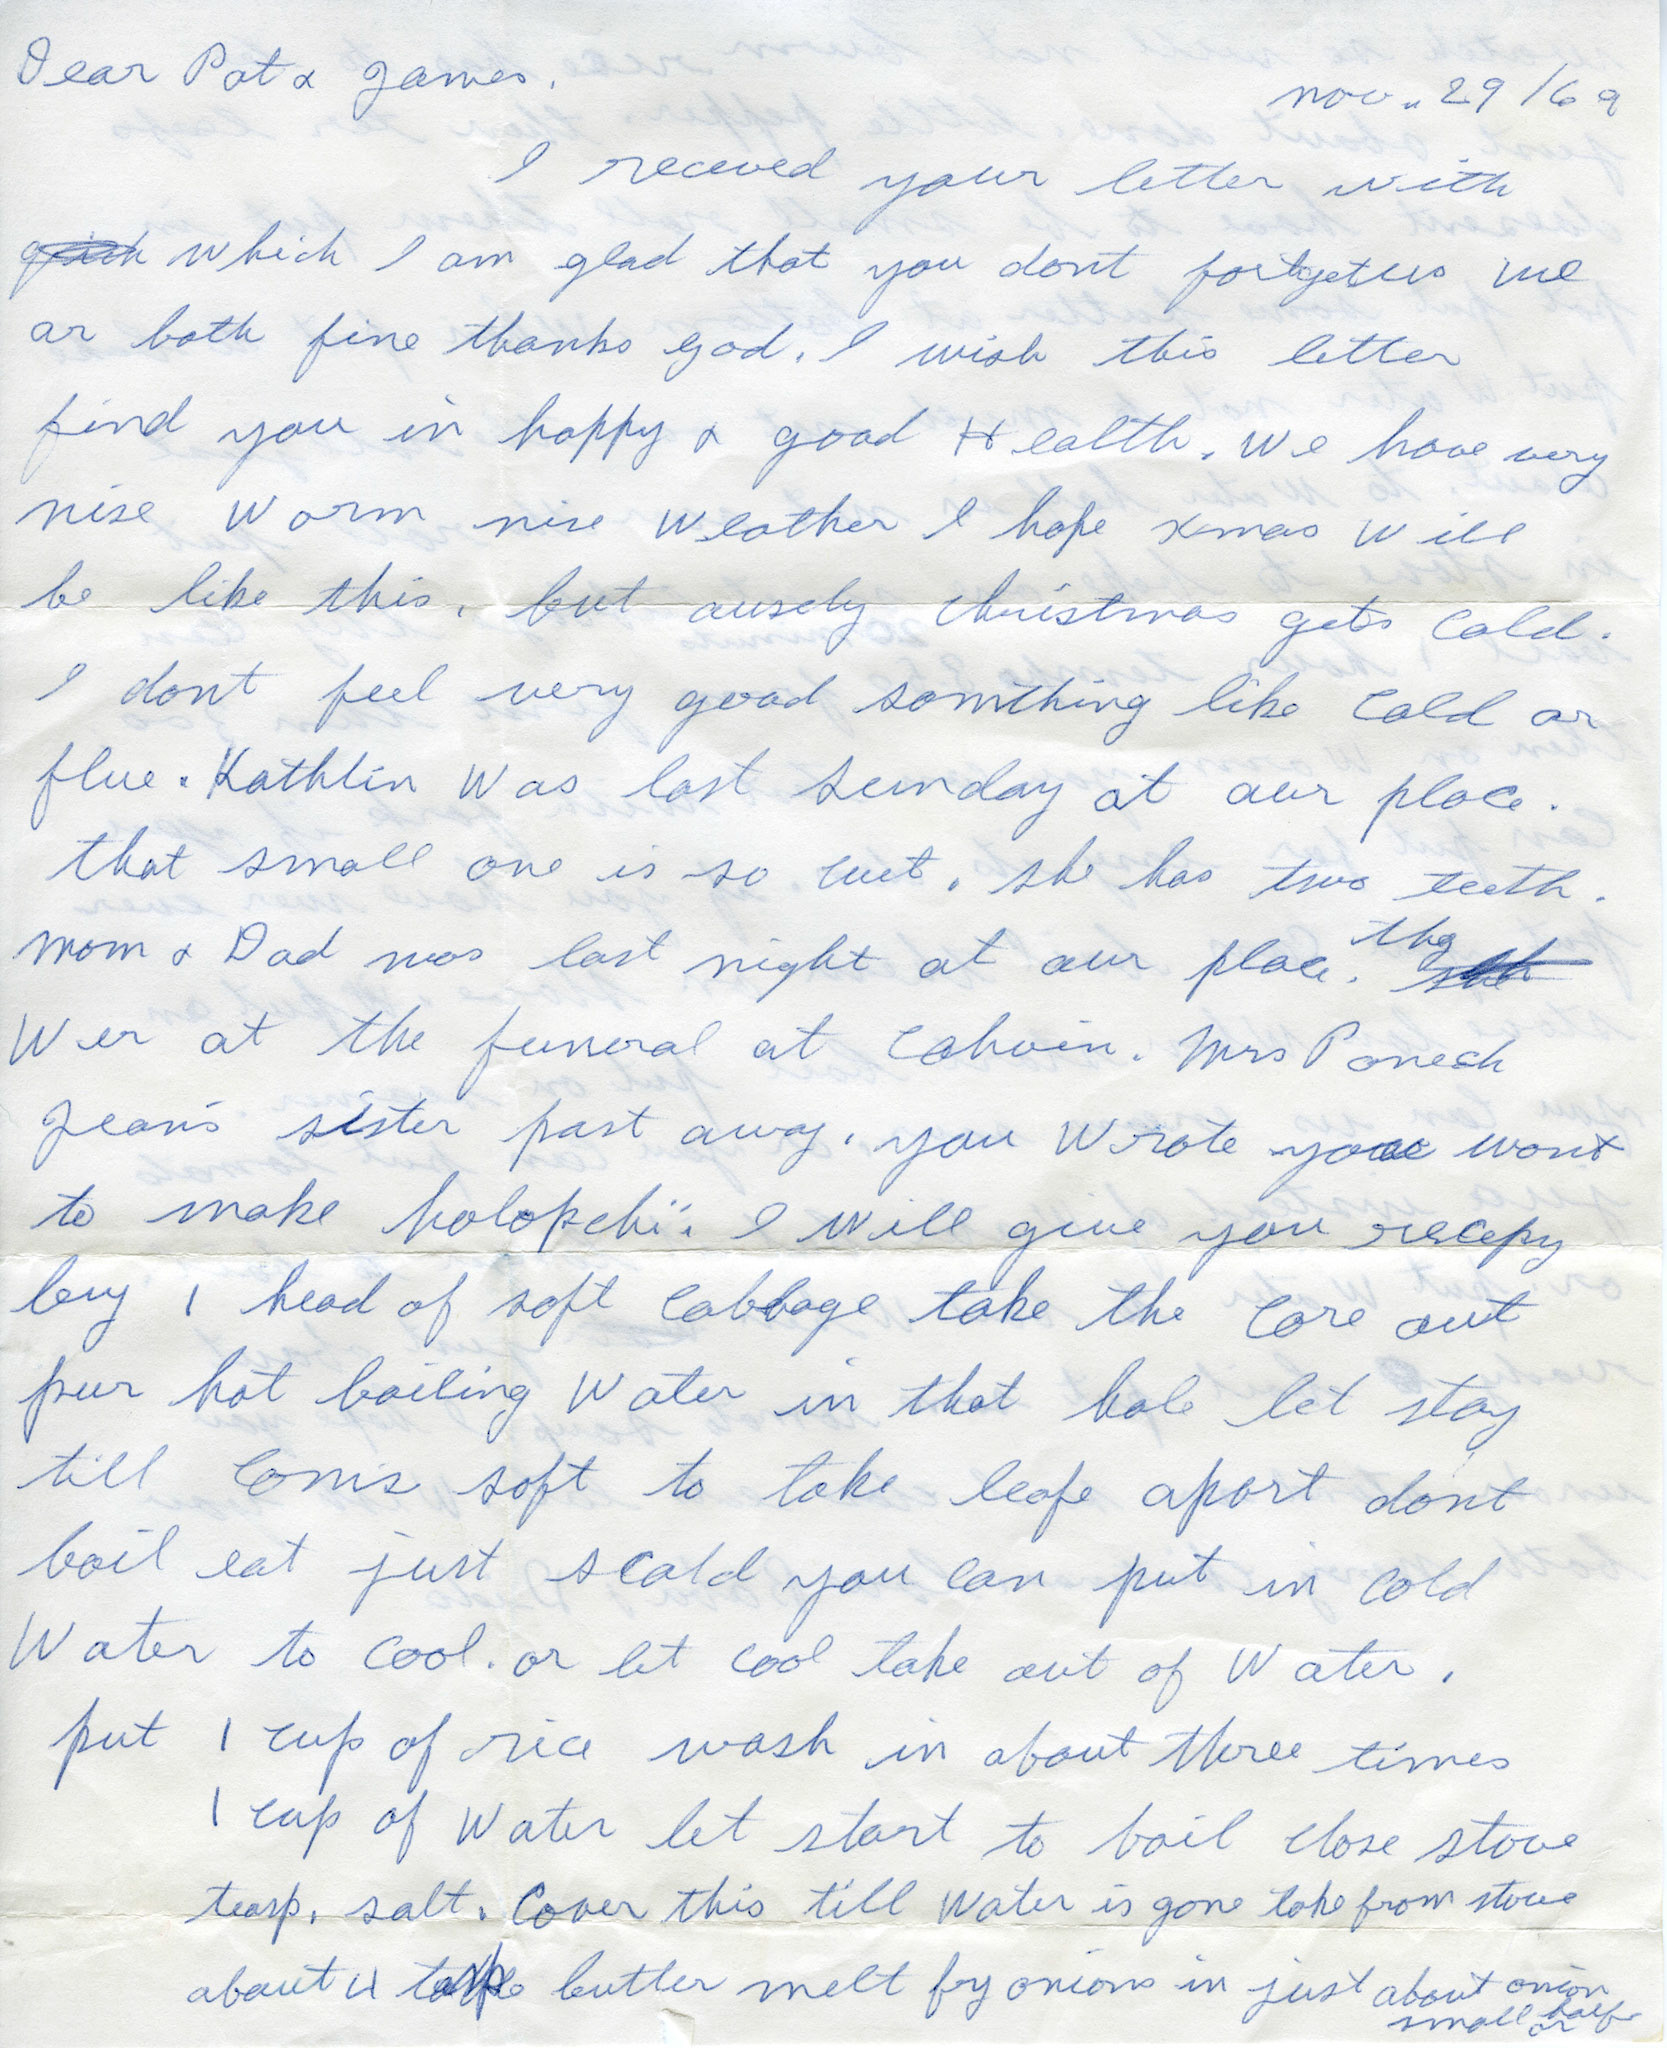 Dear Pat & James.
nov. 29/69
I receved your letter with
which I am glad that you dont fortget us we
ar both fine thanks god. I wish this letter
find you in happy & good Health. We have very
nise Worm nise Weather I hope xmas Will
be like this. but ausely Christmas gets Cold.
I dont feel very good somithing like Cold or
flue. Kathlin Was last sunday at aur place.
that small one is so cut. she has two teeth.
Mom & Dad was last night at aur place. thy
Wer at the funeral at Calvin. Mrs Ponech
Jean's sister past away. you Wrote you wont
to make holopchi. I Will give you recepy
buy 1 head of soft Cabbage take the Core out
pur hot boiling Water in that hole let stay
till Coms soft to take leafe apart dont
boil eat just scald you can put in cold
Water to cool. or let cool take out of Water.
put 1 cup of rice wash in about three times
1 cup of Water let start to boil close stove
teasp. salt. Cover this till Water is gone take from stove
about 4 butter melt fry onions in just about onion
small or half